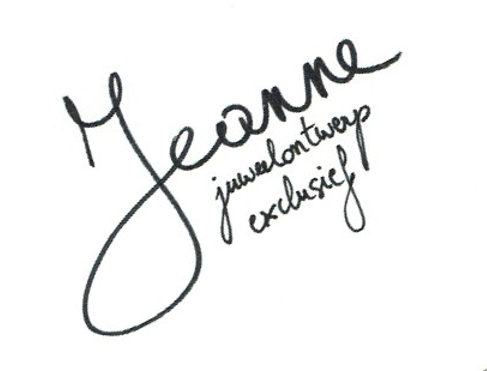 Jeanne
juweelontwerp
exclusief